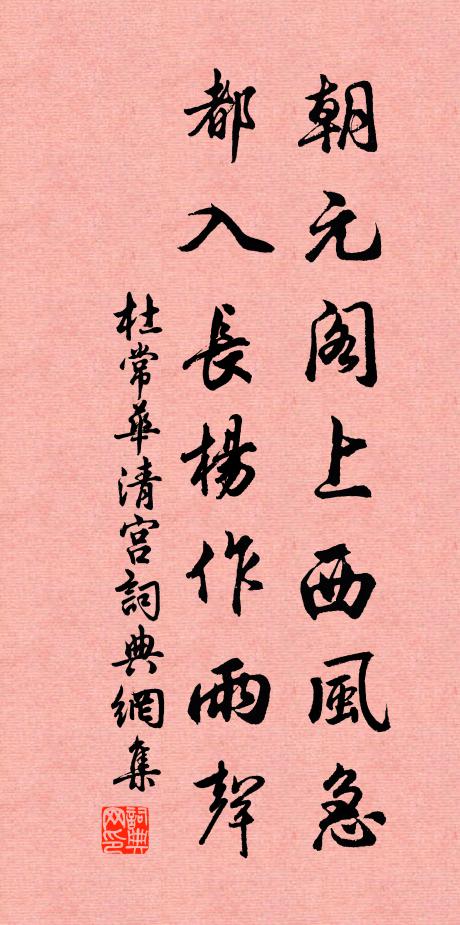 朝元阁上西風急
都入長楊作雨聲
杜常華清宫詞典網集
詞典网印